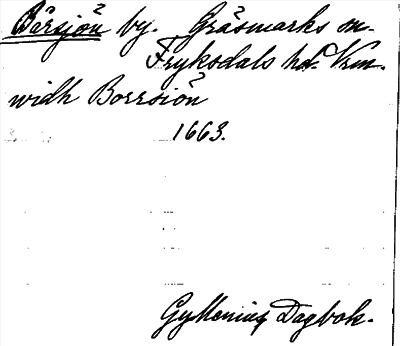 Bårsjön by. Gräsmarks sn.
Fryksdals hd. Vrm.
widh Borrsiön
1663.
Gyllenius Dagbok.